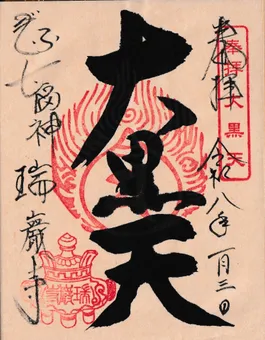 奉拝
奉拝大黒天
令和八年一月三日
大黒天
七福神
瑞巌寺